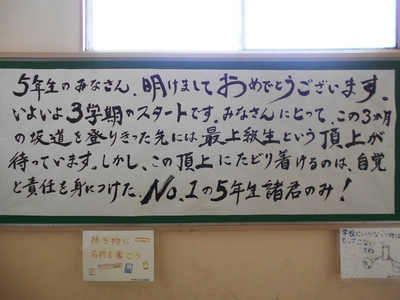 5年生のみなさん、明けましておめでとうございます。
いよいよ3学期のスタートです。みなさんにとって、この3か月
の坂道を登りきった先には、最上級生という頂上が
待っています。しかし、この頂上にたどり着けるのは、自覚
と責任を身につけた、No.1の5年生諸君のみ!
持ち物に
名前を書こう
学校にいらない物は
もってこない
でね